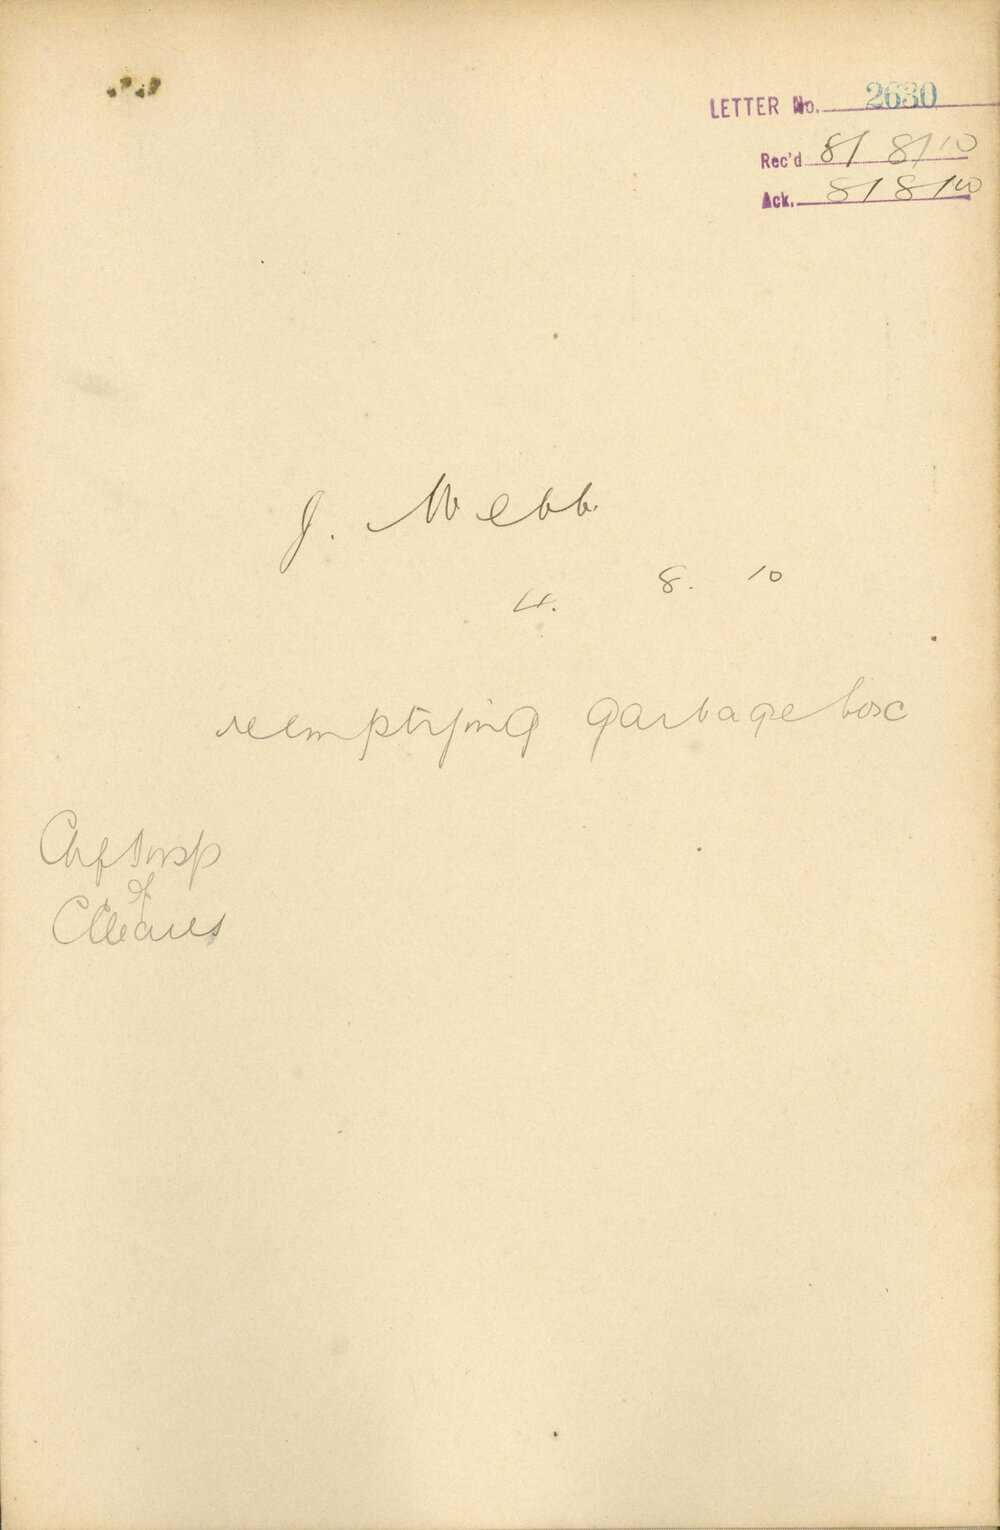 LETTER No. 2630
Rec'd 8/ 8/10
Ack. 8/8/10
J. Webb.
4. 8. 10
re emptying garbage box
Chf Insp
of